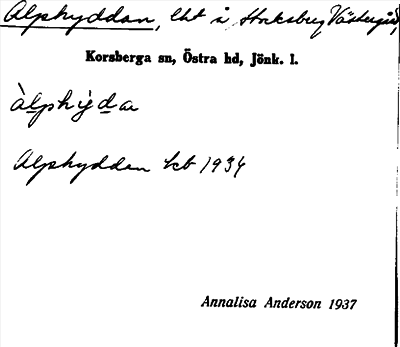 Alphyddan, lht i Stocksberg Västergård,
Korsberga sn, Östra hd, Jönk. l.
àlphỳda
Alphyddan kb 1934
Annalisa Anderson 1937